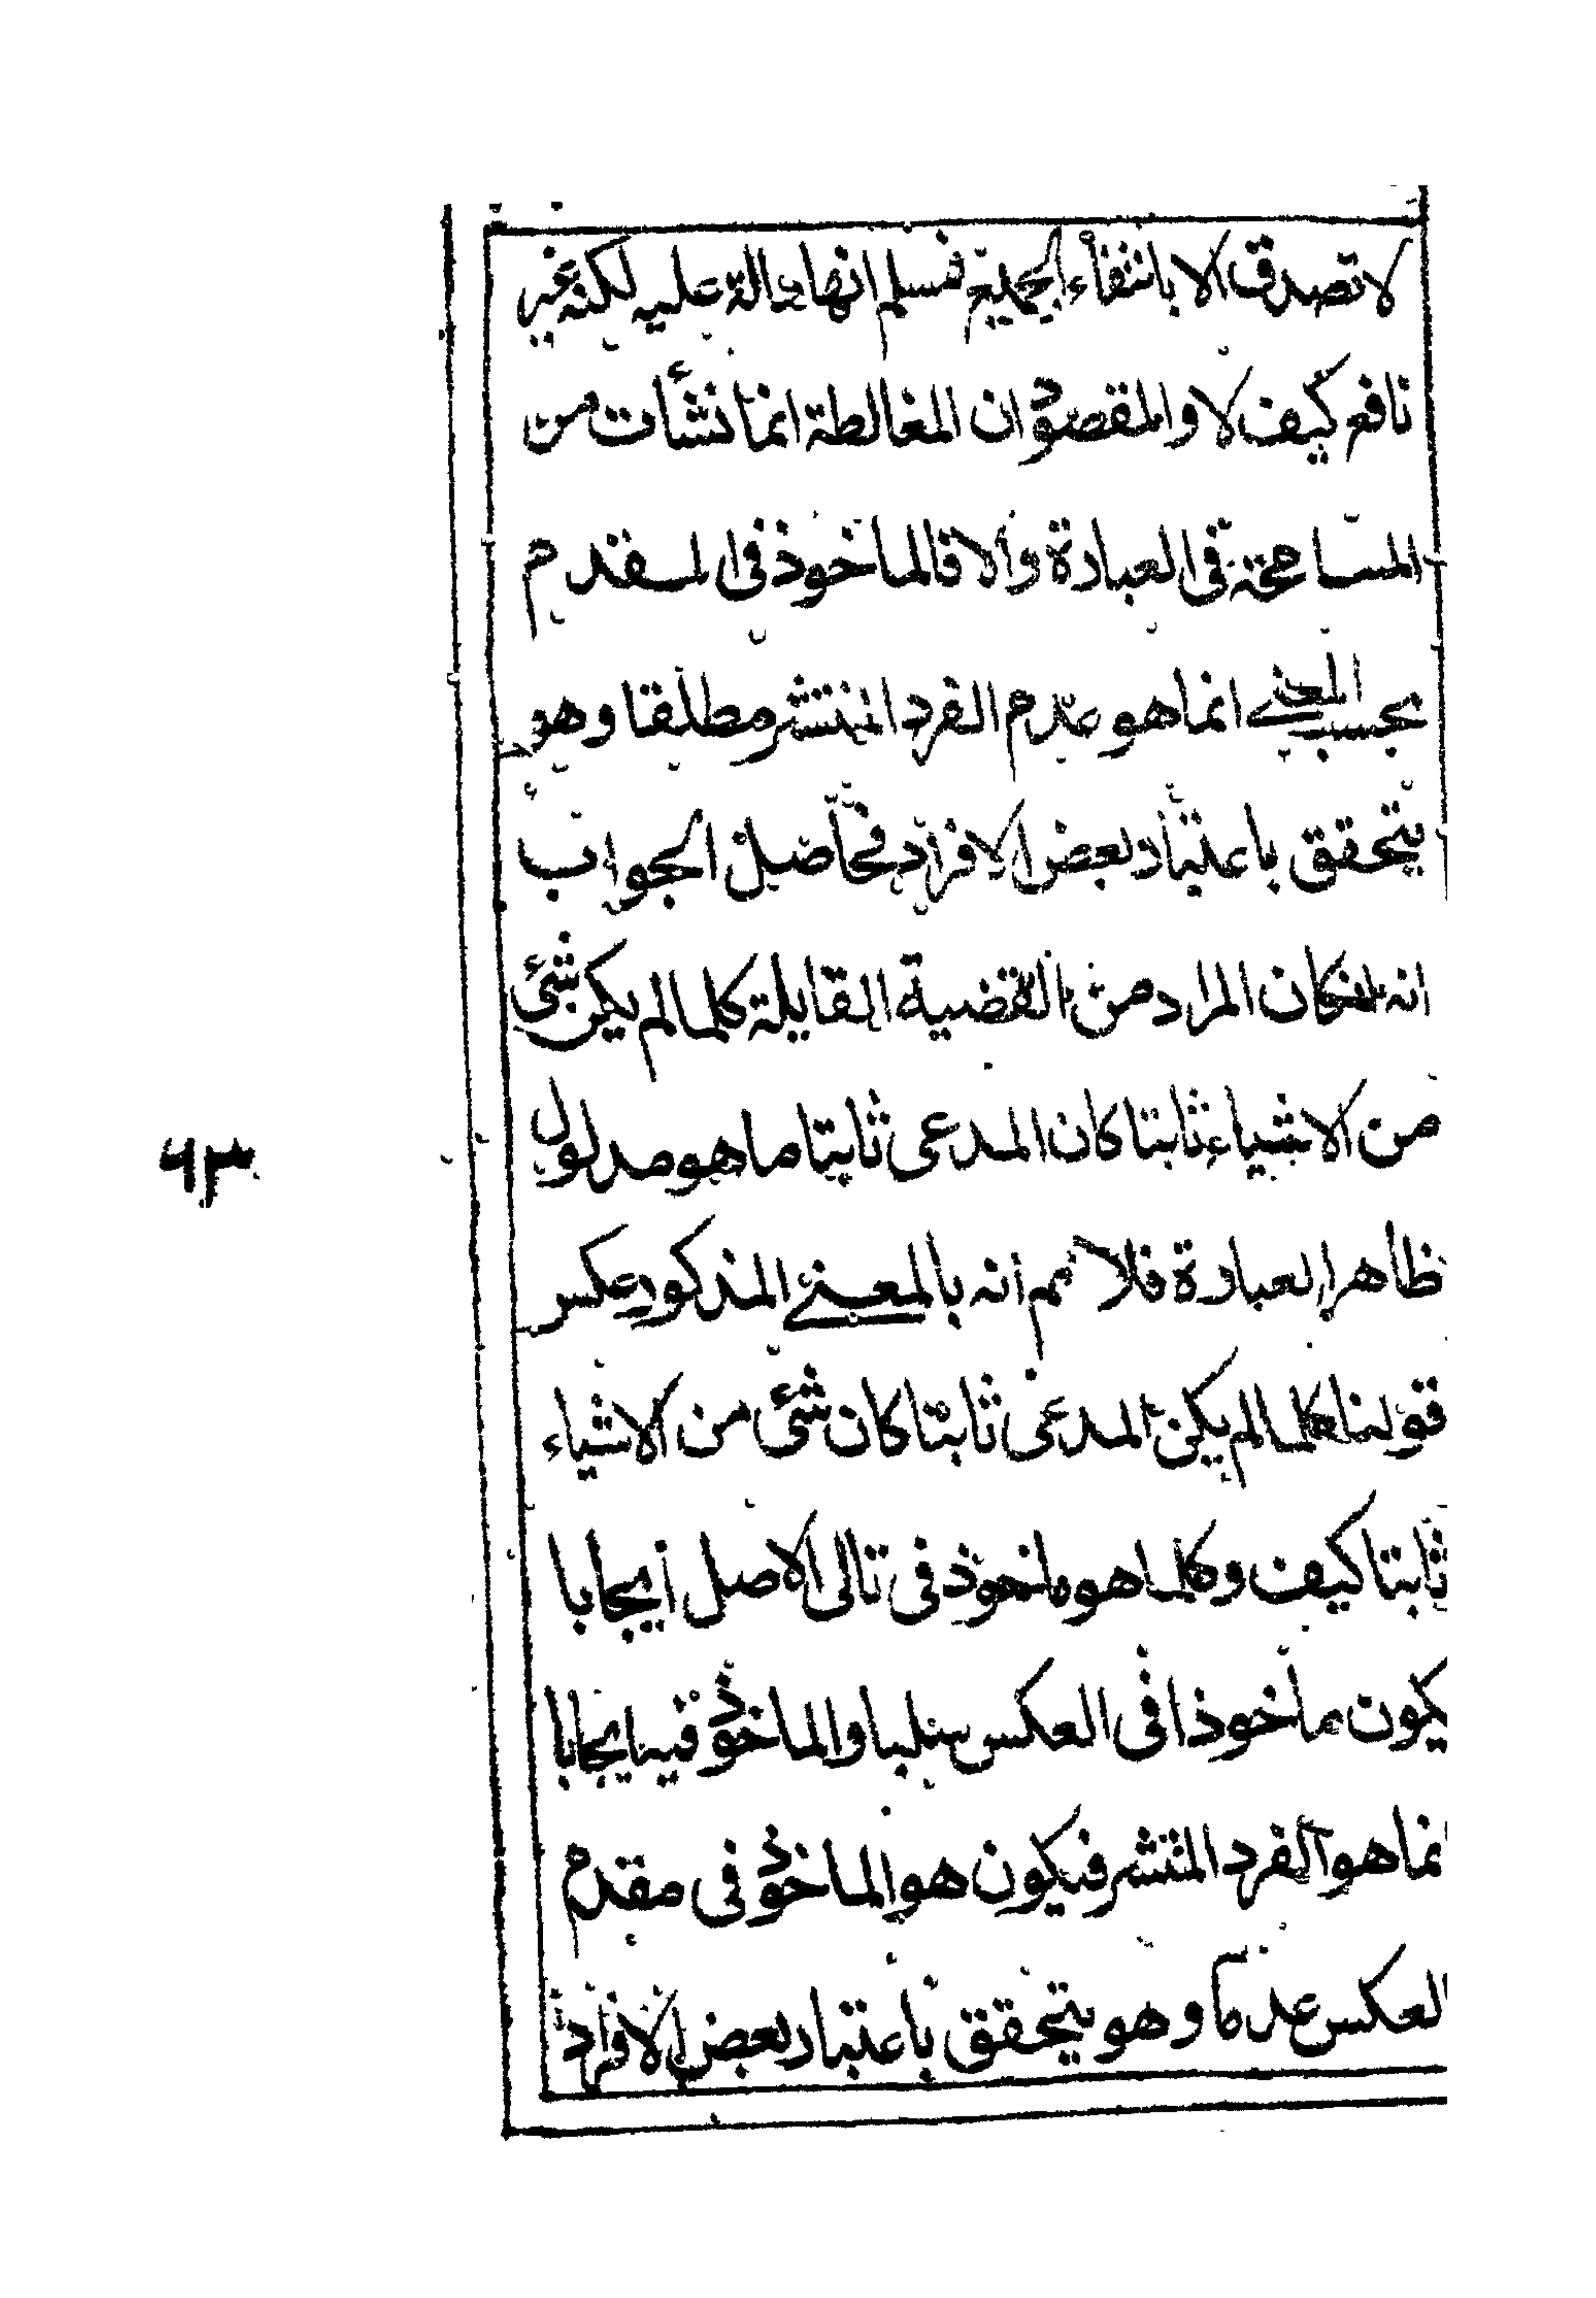 لا تصدق الا بانتفاء الجميع فمسلم انها دالة عليه لكنه غير
نافع كيف لا والمقصود ان المغالطة انما نشأت من
المسامحة فى العبارة والا فالماخوذ فى المقدم
بحسب المعنے انما هو عدم الفرد المنتشر مطلقا وهو
يتحقق باعتبار بعض الافراد فحاصل الجواب
انه كان المراد من القضية القايلة كلما لم يكن شئ
من الاشياء ثابتا كان المدعى ثابتا ما هو مدلول
ظاهر العبارة فلا نم انه بالمعنے المذكور عكس
قولنا كلما لم يكن المدعى ثابتا كان شئ من الاشياء
ثابتا كيف وكلما هو ماخوذ فى تالى الاصل ايجابا
يكون ماخوذا فى العكس سلبا والماخوذ فيه ايجابا
نما هو الفرد المنتشر فيكون هو الماخوذ فى مقدم
لعكس عدما وهو يتحقق باعتبار بعض الافراد
٦٣